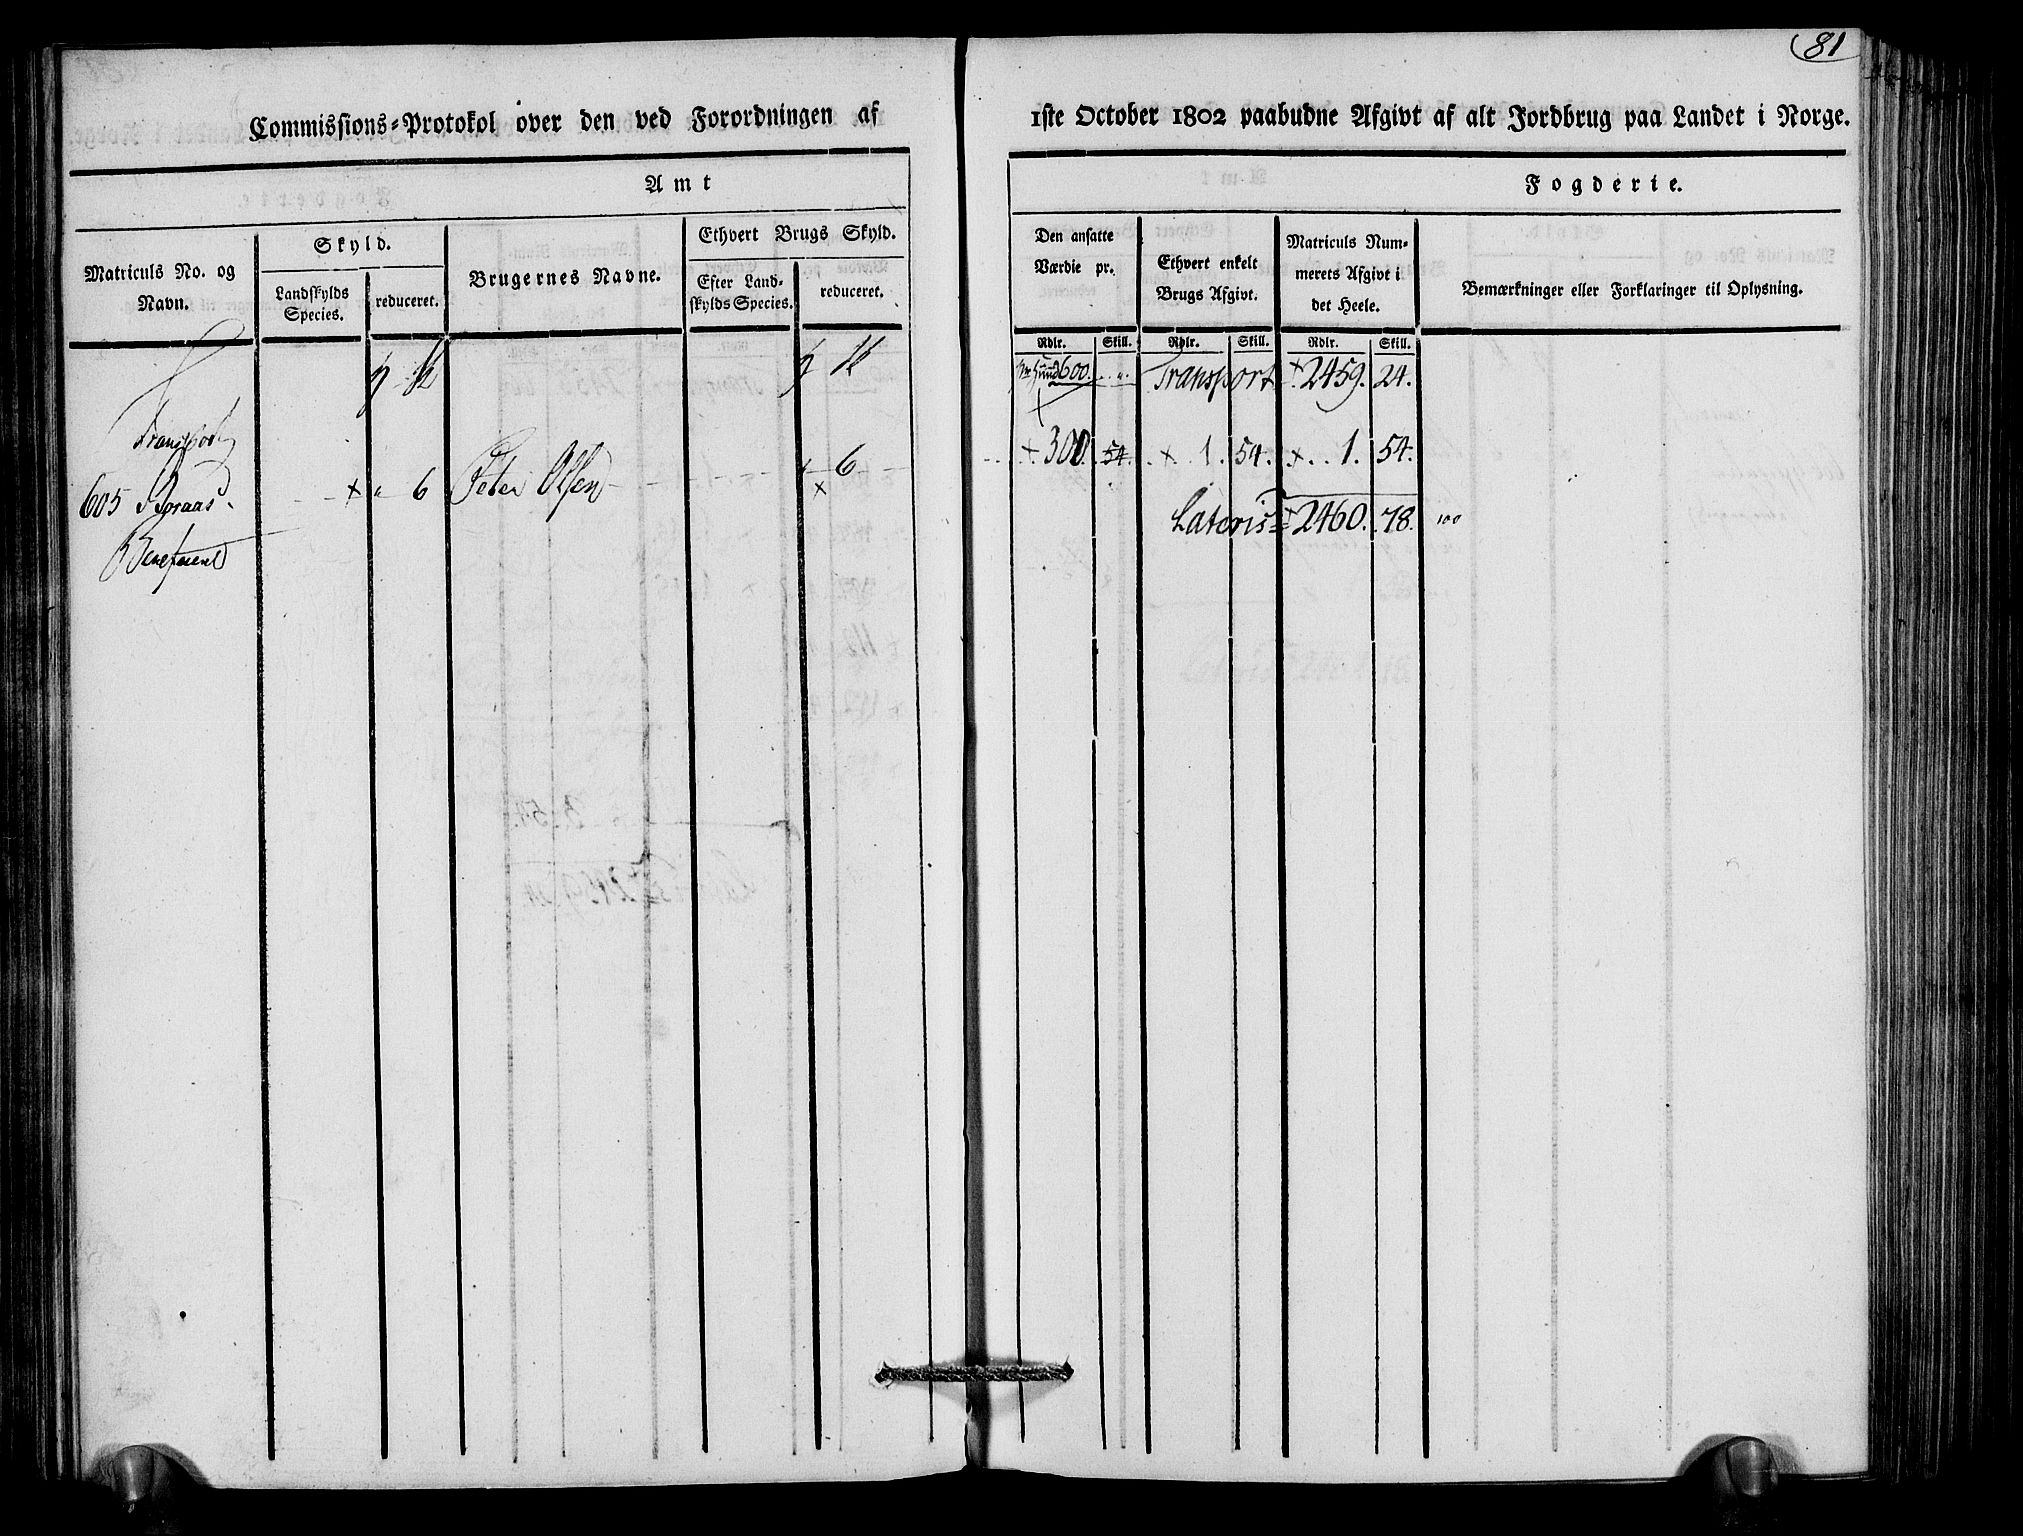 81
Commissions-Protokol over den ved Forordningen af 1ste October 1802 paabudne Afgivt af alt Jordbrug paa Landet i Norge.
Amt Fogderie.
Matriculs No. og Navn.
Skyld.
Landskylds Species.
reduceret.
Brugernes Navne.
Ethvert Brugs Skyld.
Efter Landskylds Species.
reduceret.
Den ansatte Værdie pr.
Ethvert enkelt Brugs Afgivt.
Matriculs Nummerets Afgivt i det Heele.
Bemærkninger eller Forklaringer til Oplysning.
Rdlr. Skill. Rdlr. Skill. Rdlr. Skill.
600. Transport 2459. 24.
Transport
605 6 Peter Olsen 6 300 54. 1. 54. 1. 54.
Lateris 2460. 78. 100